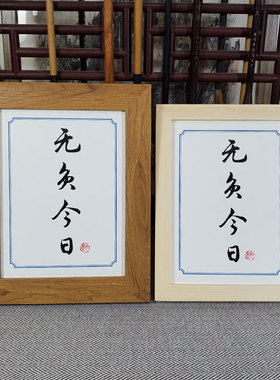 无负今日
无负今日